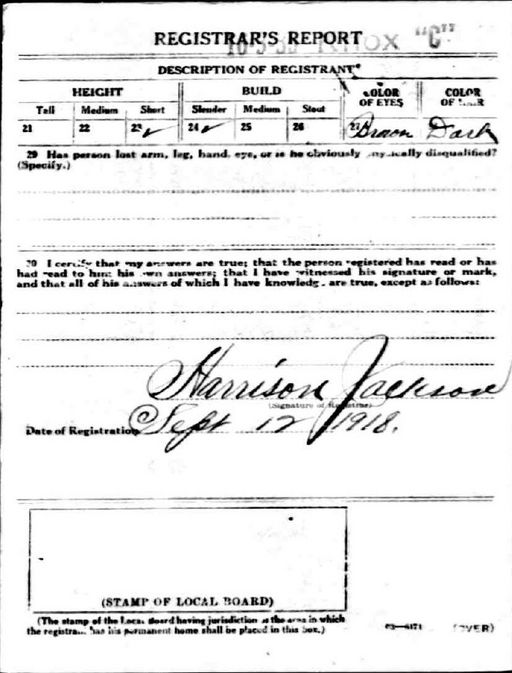 REGISTRAR'S REPORT
"C"
DESCRIPTION OF REGISTRANT
HEIGHT BUILD COLOR OF EYES COLOR OF HAIR
Tall Medium Short Slender Medium Stout
21 22 23 ✓ 24 ✓ 25 26 27 Brown Dark
29 Has person lost arm, leg, hand, eye, or is he obviously physically disqualified?
(Specify.)
30 I certify that my answers are true; that the person registered has read or has
had read to him his own answers; that I have witnessed his signature or mark,
and that all of his answers of which I have knowledge are true, except as follows:
Harrison Jackson
(Signature of Registrar)
Date of Registration Sept 12 1918.
(STAMP OF LOCAL BOARD)
(The stamp of the Local Board having jurisdiction of the area in which
the registrant has his permanent home shall be placed in this box.)
03—6171 (OVER)